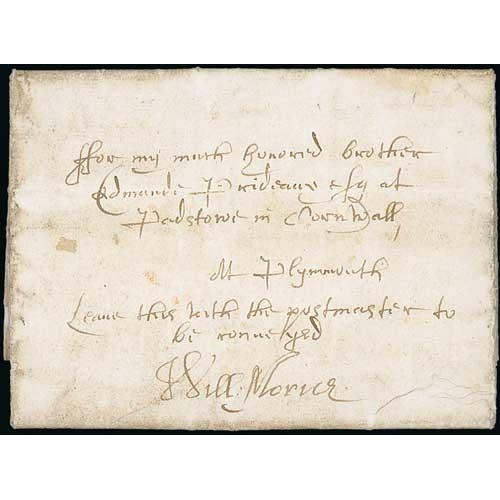 ffor my much honored brother
Edmande Prideaux esq at
Padstowe in Cornwall
At Plymmouth
Leave this with the postmaster to
be conveyed
Will: Morice